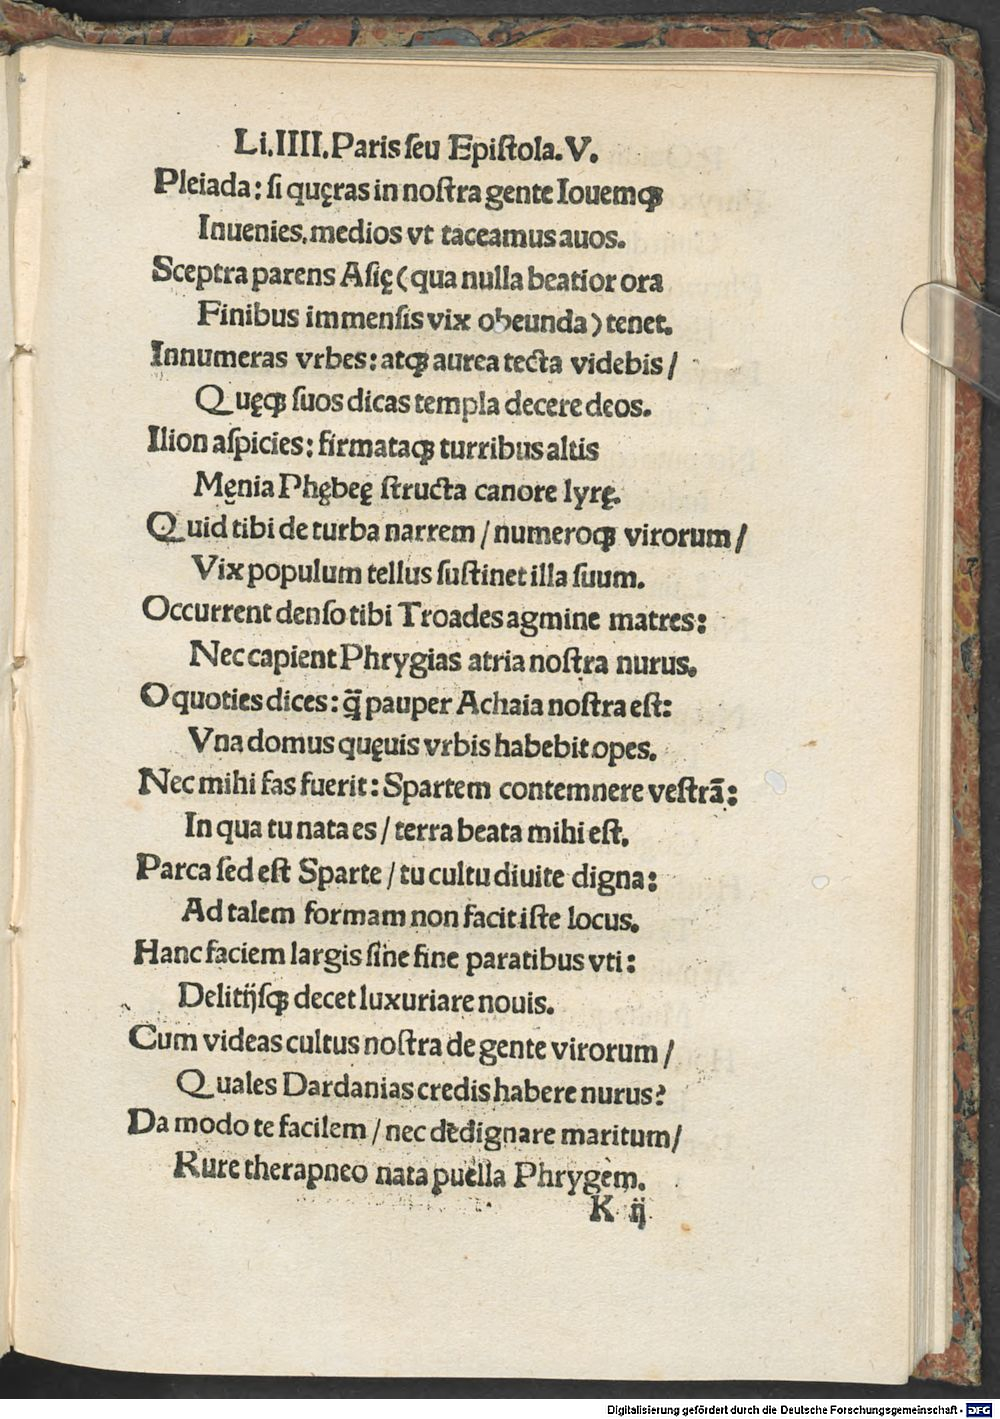 Li.IIII.Paris ſeu Epiſtola.V.
Pleiada: ſi quęras in noſtra gente Iouemqꝫ
Inuenies.medios vt taceamus auos.
Sceptra parens Aſię (qua nulla beatior ora
Finibus immenſis vix obeunda) tenet.
Innumeras vrbes: atqꝫ aurea tecta videbis /
Quęqꝫ ſuos dicas templa decere deos.
Ilion aſpicies: firmataqꝫ turribus altis
Męnia Phębeę ſtructa canore lyrę.
Quid tibi de turba narrem / numeroqꝫ virorum /
Vix populum tellus ſuſtinet illa ſuum.
Occurrent denſo tibi Troades agmine matres:
Nec capient Phrygias atria noſtra nurus.
O quoties dices: q̄ꝫ pauper Achaia noſtra eſt:
Vna domus quęuis vrbis habebit opes.
Nec mihi fas fuerit: Spartem contemnere veſtrā:
In qua tu nata es / terra beata mihi eſt.
Parca ſed eſt Sparte / tu cultu diuite digna:
Ad talem formam non facit iſte locus.
Hanc faciem largis ſine fine paratibus vti:
Delitijſqꝫ decet luxuriare nouis.
Cum videas cultus noſtra de gente virorum /
Quales Dardanias credis habere nurus?
Da modo te facilem / nec dedignare maritum /
Rure therapneo nata puella Phrygem.
K ij
Digitalisierung gefördert durch die Deutsche Forschungsgemeinschaft - DFG